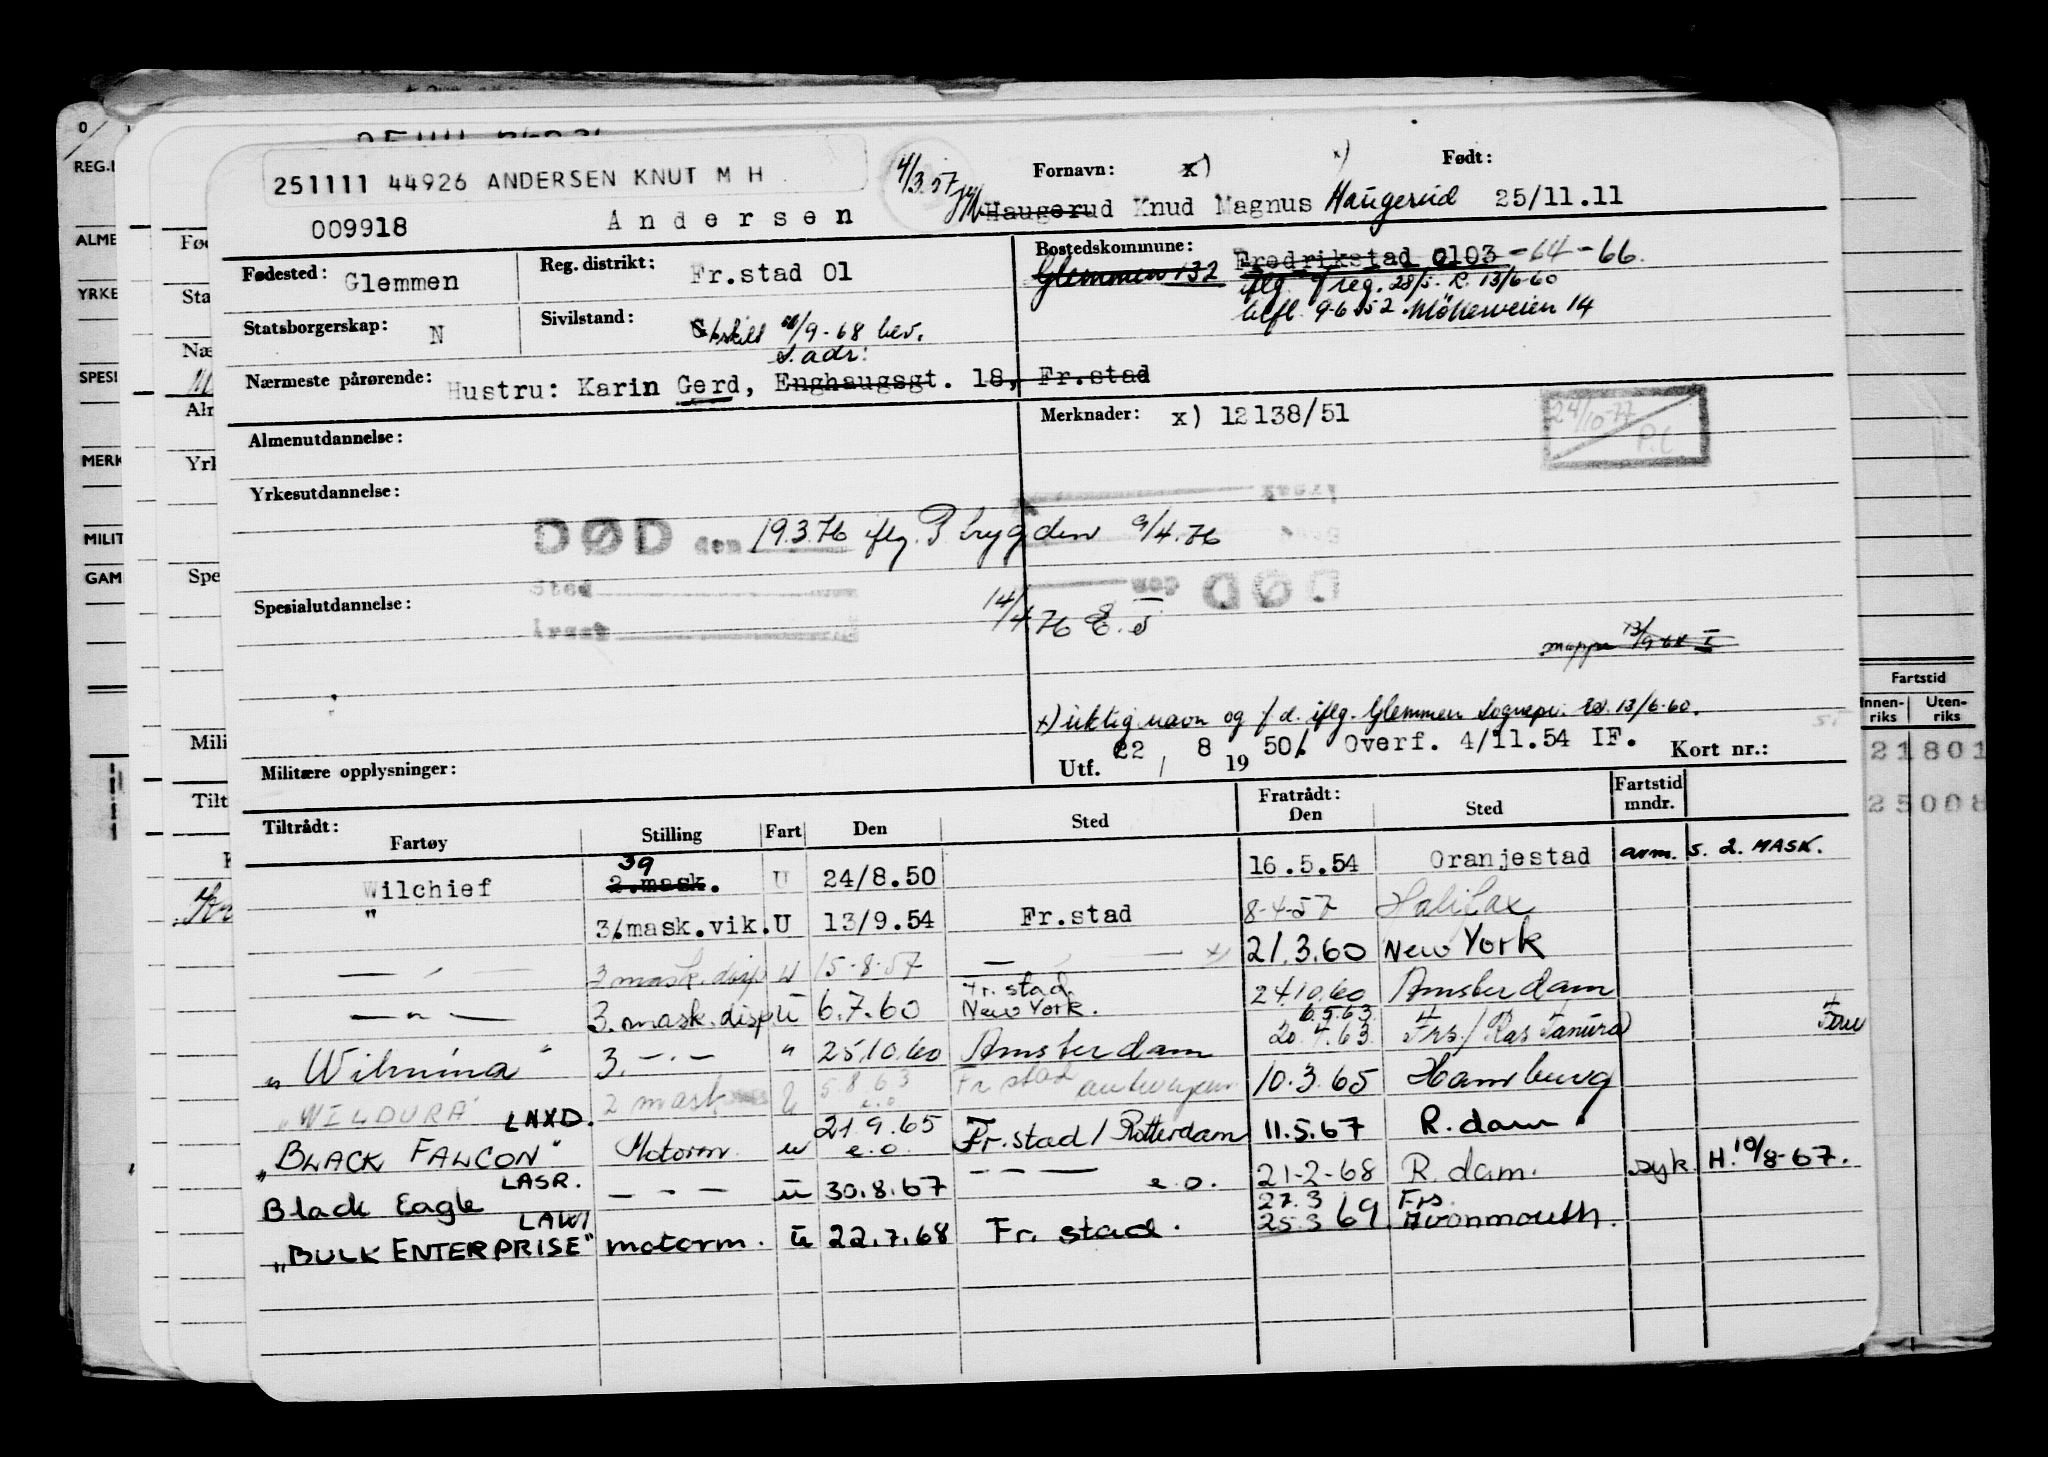 251111 44926 ANDERSEN KNUT M H
4/3.57
Fornavn: x) x) Født:
009918 Andersen Haugerud Knud Magnus Haugerud 25/11.11
Fødested: Glemmen Reg. distrikt: Fr.stad 01 Bostedskommune: Glemmen 132 Fredrikstad 0103 -64-66.
iflg. reg. 28/5- R. 13/6-60
Statsborgerskap: N Sivilstand: /9-68 bev. tlfl. 9.6.52 Møllerveien 14
s. adr:
Nærmeste pårørende: Hustru: Karin Gerd, Enghaugsgt. 18, Fr.stad
Almenutdannelse: Merknader: x) 12138/51
24/10-77
P.L
Yrkesutdannelse:
Årsak
DØD den 19.3.76 iflg. Trygden 9/4.76
Sted
DØD den
Spesialutdannelse: 14/4 76
Årsak
mappe 13/9-68 I
x) riktig navn og f.d. iflg. Glemmen sognepr. 13/6-60.
Militære opplysninger: Utf. 22 / 8 19 50/. Overf. 4/11.54 IF. Kort nr.:
Tiltrådt: Fartøy Stilling Fart Den Sted Fratrådt: Den Sted Fartstid mndr.
Wilchief 39 2.mask. U 24/8.50 16.5.54 Oranjestad anm. s. 2. MASK.
" 3.mask.vik. U 13/9.54 Fr.stad 8-4-57 Halifax
— " — 3 mask. disp U 15-8-57 — " — x) 21.3.60 New York
— " — 3. mask. disp. U 6.7.60 Fr. stad. New York. 24.10.60 Amsterdam
" Wilmina " 3. — " — " 25.10.60 Amsterdam 6.5.63 20.4.63 Frs / Ras Tanura
"WILDURA" 2 mask U 5.8.63 e.o. Fr stad 10.3.65 Hamburg
"BLACK FALCON" LNXD. Motorm. u 21.9.65 e.o. Fr.stad / Rotterdam 11.5.67 R.dam
Black Eagle LASR. — " — u 30.8.67 — " — e.o. 21-2-68 R.dam. syk. H. 10/8-67.
"BULK ENTERPRISE" LAWI motorm. u 22.7.68 Fr. stad. 27.3 25.3 69. Frs. Avonmouth.
REG.
ALME
YRKE
SPESI
MERK
MILIT
GAM
Fød
Sta
Næ
Alm
Yrk
Spe
Mili
Tilt
Fartstid
Innen-riks Uten-riks
21801
25008